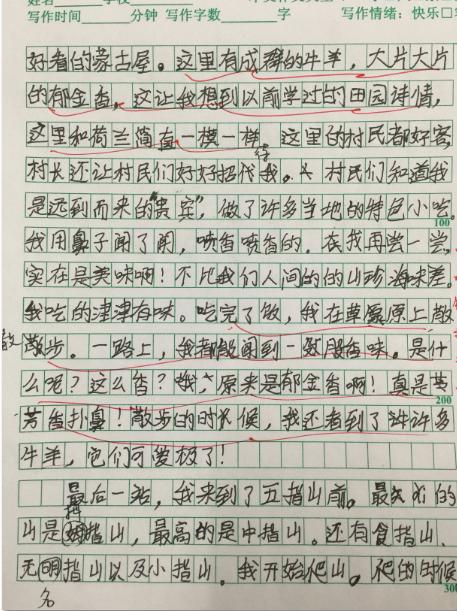 写作时间 分钟 写作字数 字 写作情绪：快乐□
好看的蒙古屋。这里有成群的牛羊，大片大片
的郁金香。这让我想到以前学过的田园诗情，
这里和荷兰简直一模一样 这里的村民都好客，
待
村长还让村民们好好招代我。村民们知道我
是远到而来的“贵宾”，做了许多当地的特色小吃。
100
我用鼻子闻了闻，喷香喷香的。在我再尝一尝，
实在是美味啊！不比我们人间的的山珍海味差。
我吃的津津有味。吃完了饭，我在草原上散
散
散步。一路上，我都闻到一股香味。是什
么呢？这么香？哦，原来是郁金香啊！真是芳
200
芳香扑鼻！散步的时候，我还看到了许许多
牛羊，它们可爱极了！
最后一站，我来到了五指山前。最
拇
山是姆指山，最高的是中指山。还有食指山、
无明指山以及小指山。我开始爬山。爬的时候
名
300